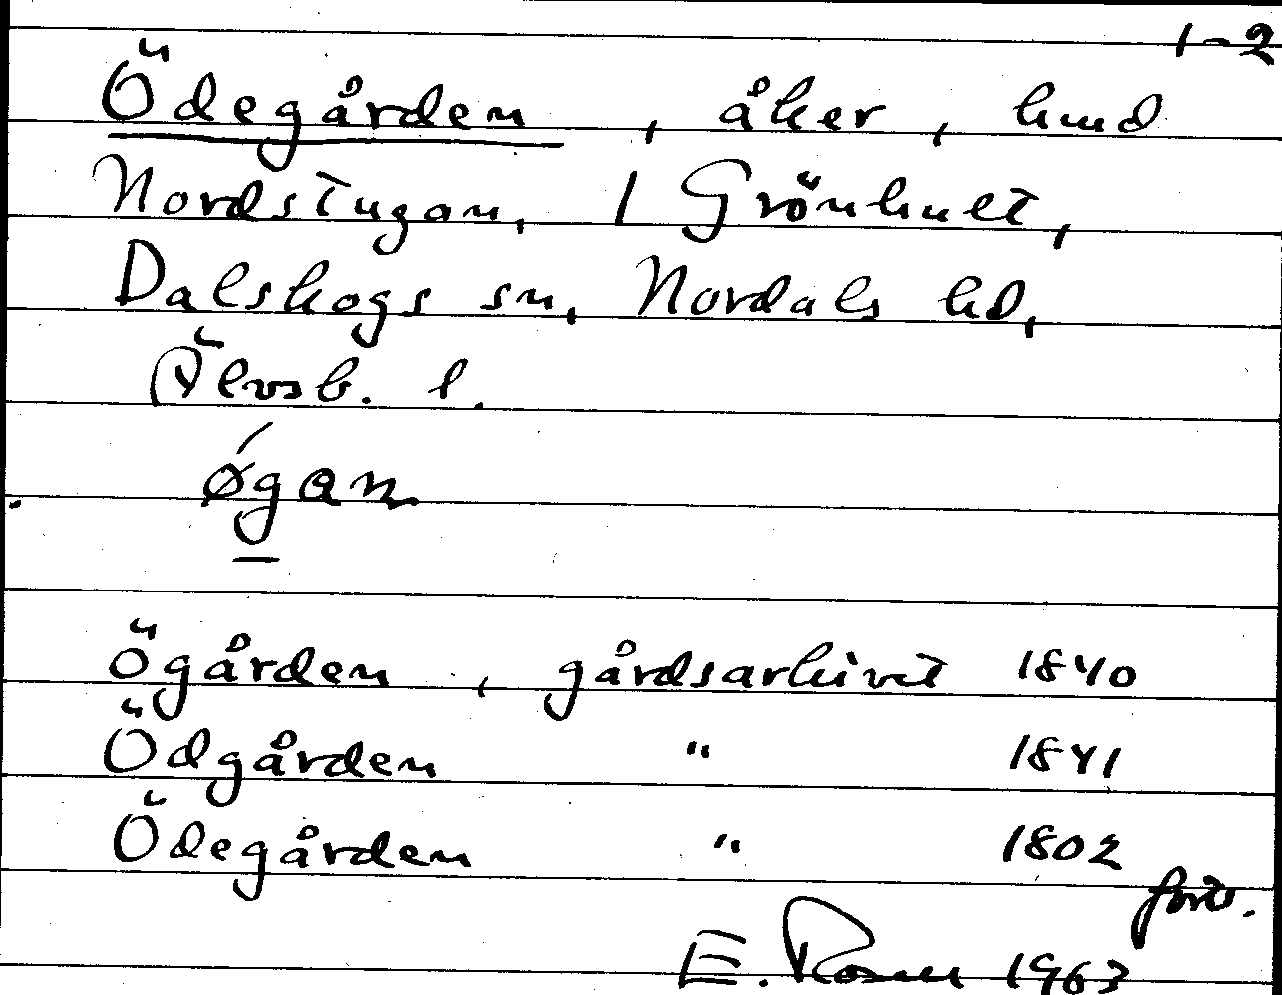 1-2
Ödegården, åker, hmd
Nordstugan, 1 Grönhult,
Dalskogs sn, Nordals hd,
Älvsb. l.
øgan
Ögården, gårdsarkivet 1840
Ödgården " 1841
Ödegården " 1802
forts.
E. Rosen 1963